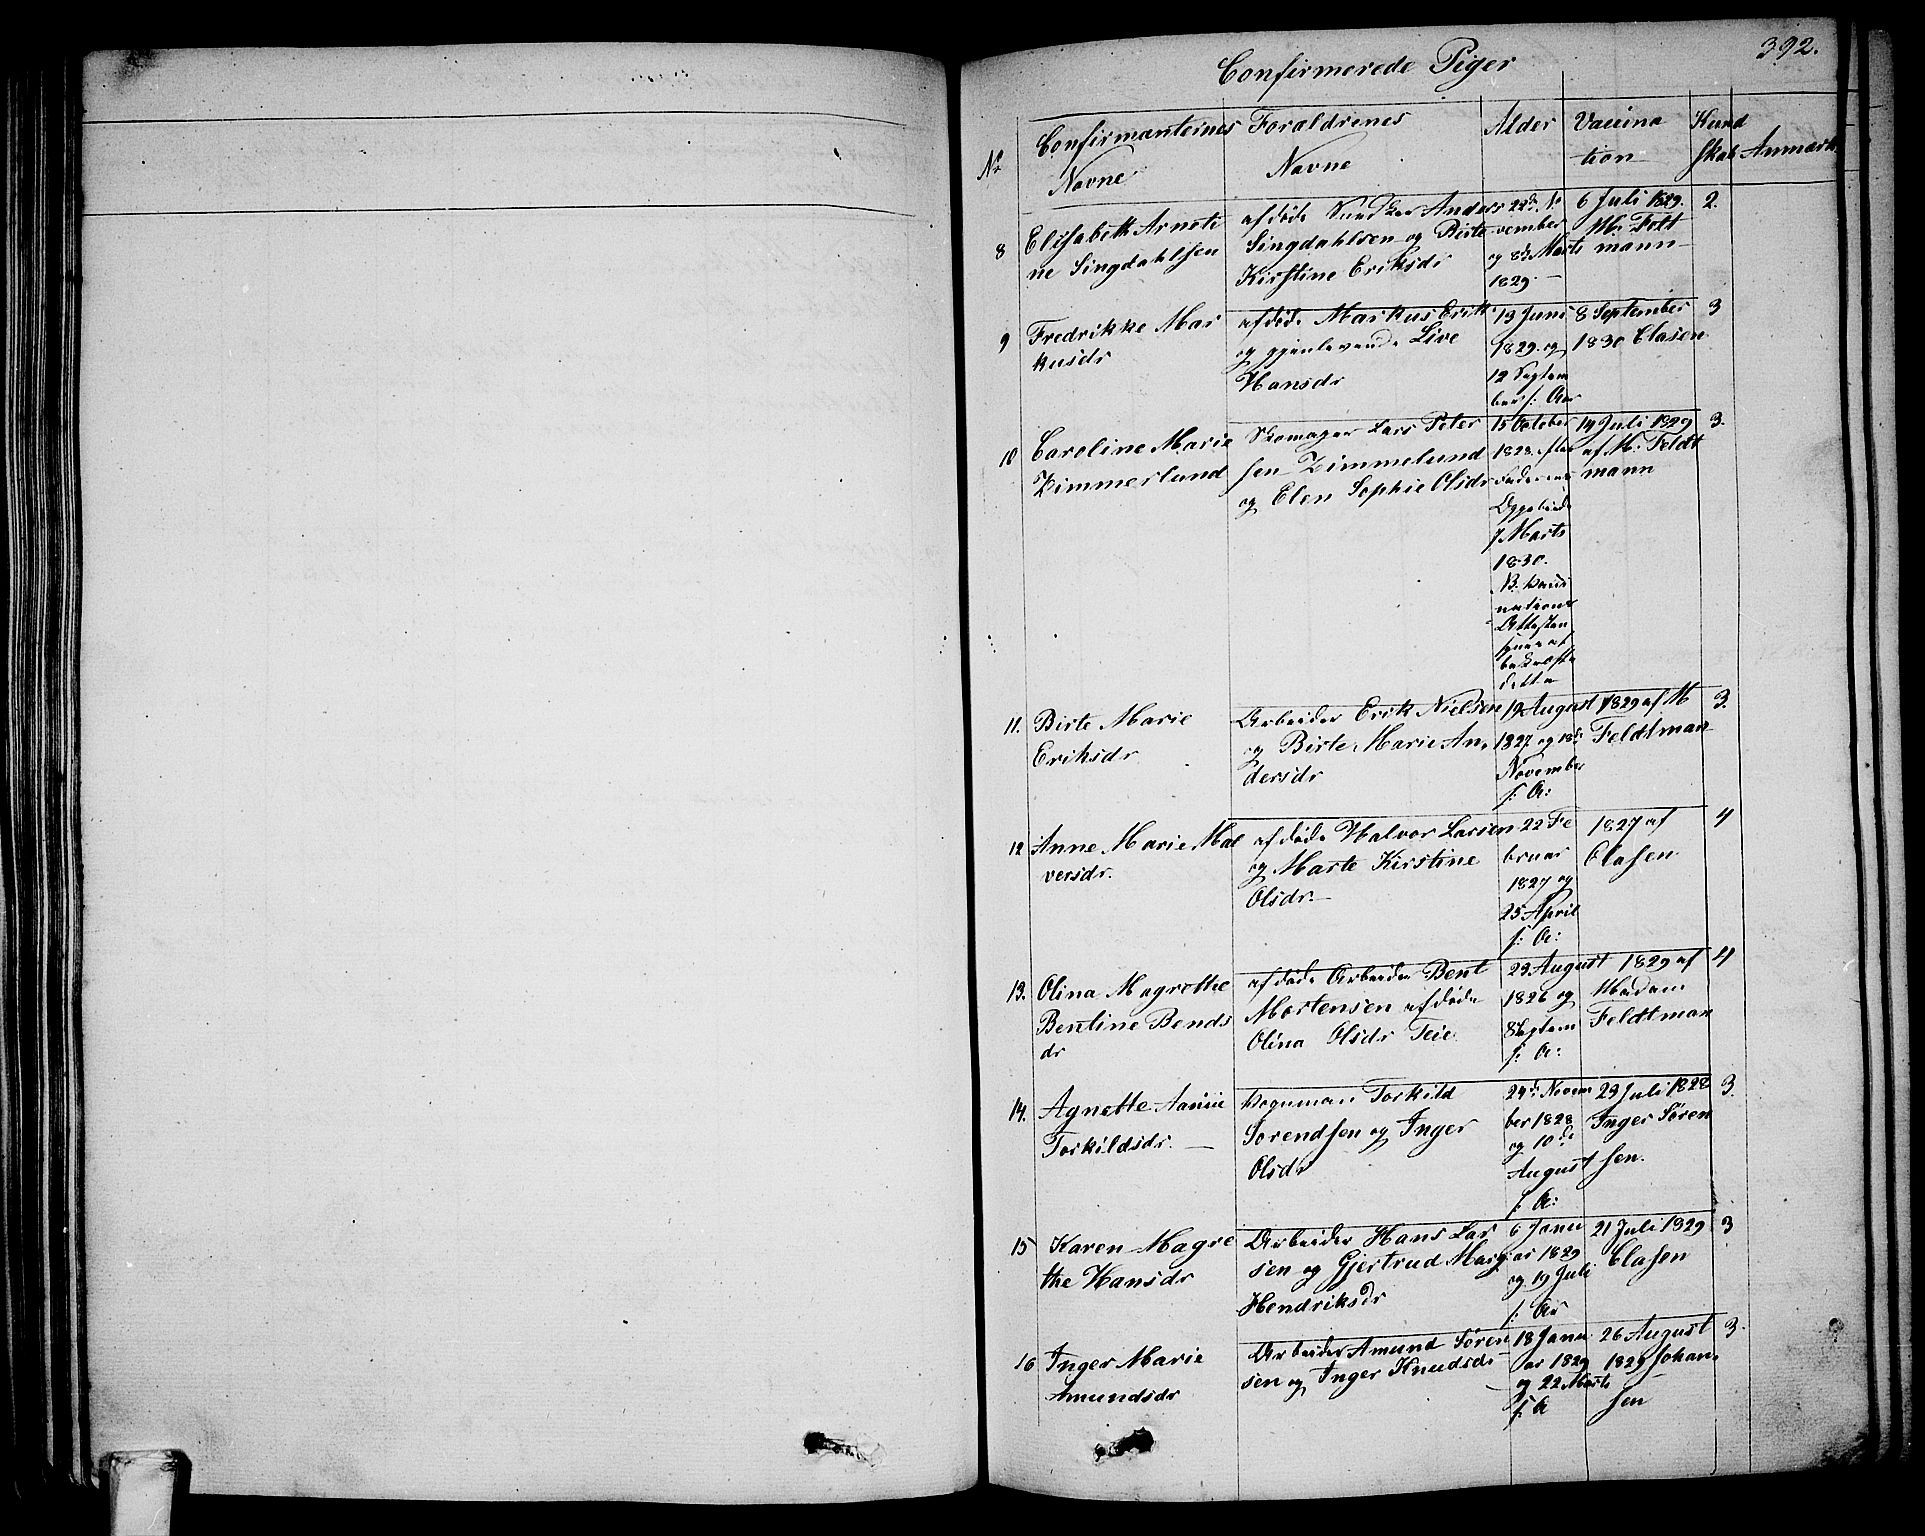 392.
Confirmerede Piger
No
Confirmanternes Navne
Foraldrenes Navne
Alder
Vaccina tion
Kund skab
Anmærk
8
Elisabeth Arneti
ne Singdahlsen
afdøde Anders
Singdahlsen og Birte
Kirstine Eriksdr
22d No
vember
og 8d Marts
1829.
6 Juli 1829.
M: Felt
mann
2.
9
Fredrikke Mar
kusdr
afdøde Markus Erik
og gjenlevende Live
Hansdr
13 Juni
1829. og
12 Septem
ber s: Aar
8 September
1830 Clasen
3
10
Caroline Marie
Zimmerlund
Skomager Lars Peter
sen Zimmelund
og Elen Sophie Olsdr
15 October
1828. efter
Faderens
Opgivende
7 Marts
1830.
detta
14 Juli 1829
af M: Feldt
mann
3.
11.
Birte Marie
Eriksdr
Arbeider Erik Nielsen
og Birte Marie An,
dersdr
19 August
1827 og 18d
November
s: A:
1829 af M
Feldtman
3.
12
Anne Marie Hal
versdr.
afdøde Halvor Larsen
og Marte Kirstine
Olsdr.
22 Fe
bruar
1827 og
25 April
s: A:
1827 af
Clasen
4
13.
Olina Magrethe
Bentine Bends
dr
afdøde Arbeider Bent
Mortensen afdøde
Olina Olsdr Teie
23 August
1826 og
8 Septem
s: A:
1829 af
Madam
Feldtman
4
14.
Agnette
Torkildsdr.
Torkild
Sorendsen og Inger
Olsdr
24d Novem
ber 1828
og 10de
August
s: A:
23 Juli 1828
Inger Sören
sen.
3.
15
Karen Magre
the Hansdr
Arbeider Hans Lar
sen og Gjertrud Marg
Hendriksdr
6 Janu
ar 1829
og 19 Juli
s: Aar
21 Juli 1829
Clasen
3
16
Inger Marie
Amundsdr
Arbeider Amund Sören
sen og Inger Knudsdr
18 Janu
ar 1829
og 22 Marts
s: A
26 August
1829 Johan,
sen
3.